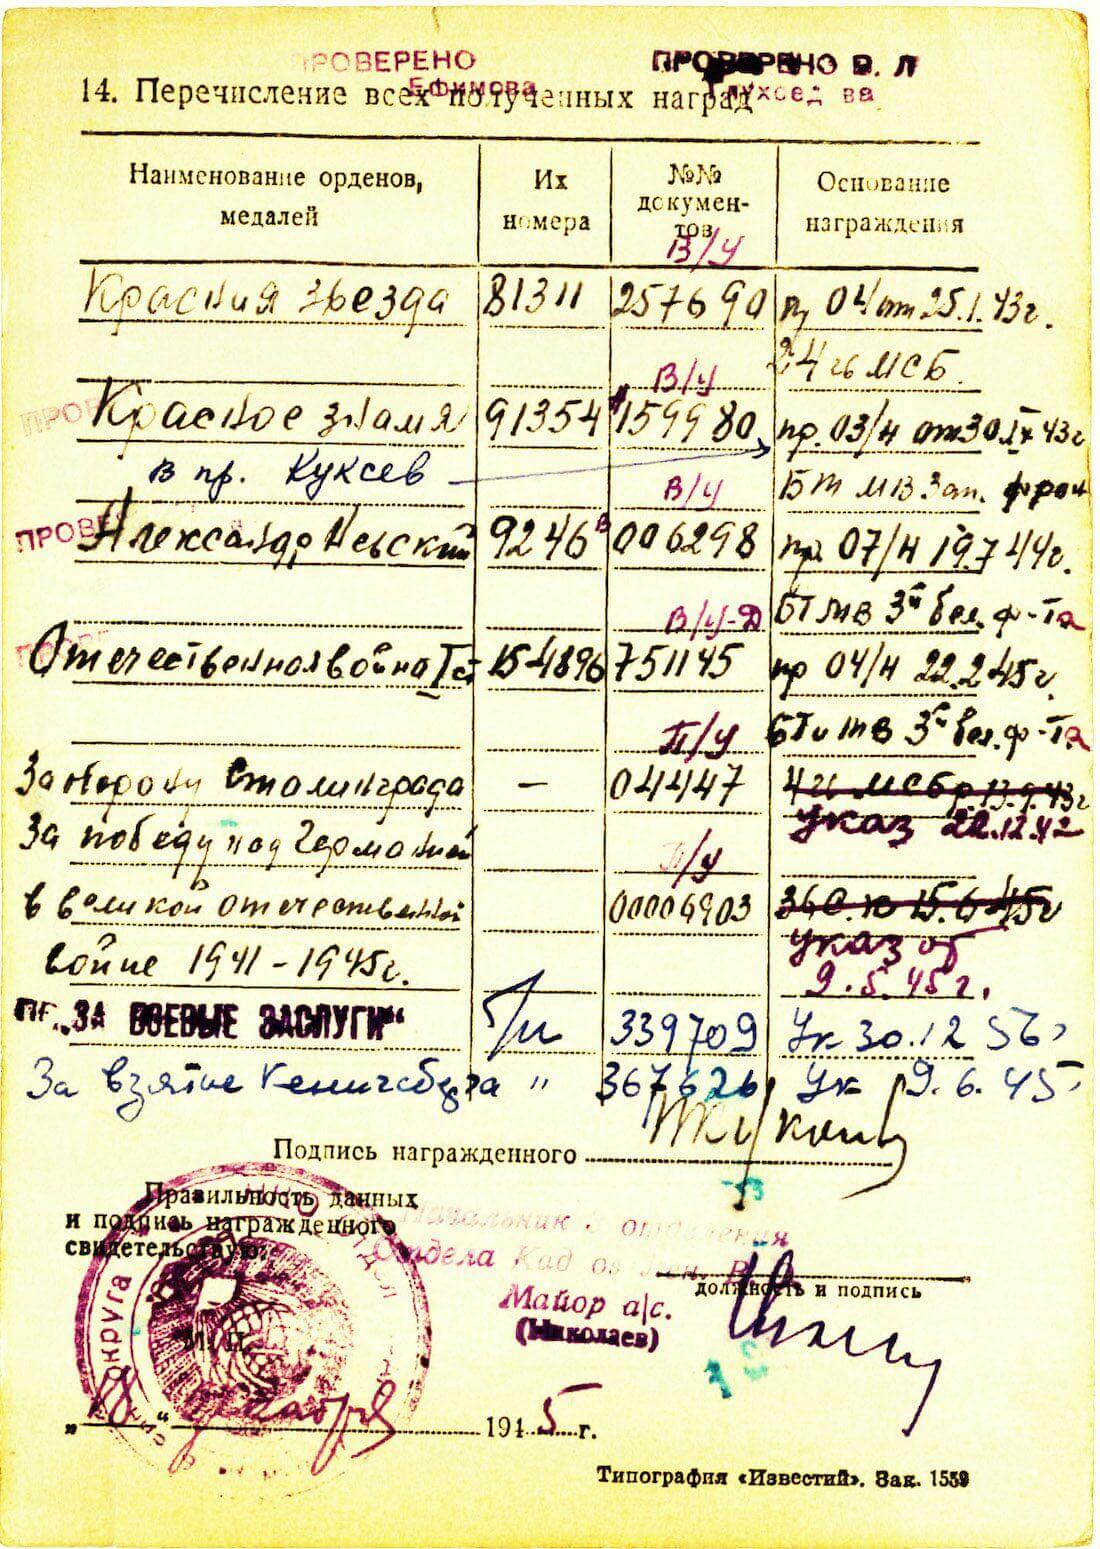 ПРОВЕРЕНО ПРОВЕРЕНО В. Л
Ефимова
14. Перечисление всех полученных наград
Наименование орденов, медалей
Их номера
№№ документов
Основание награждения
В/У
Красная звезда 81311 257690 пр 04 от 25.1.43г.
В/У 24 гв МСБ.
Красное знамя 91354 159980 пр. 03/н от 30.IX 43г
в пр. Куксев В/У БТ МВ Зап. фрон
ПРОВЕ
Александр Невский 9246 006298 пр 07/н 19.7 44г.
В/У-Д БТ МВ 3й бел. ф-та
Отечественная война I ст 154896 751145 пр 04/н 22.2.45г
П/У БТиМВ 3й бел. ф-та
За оборону Сталинграда – 04447 4 гв МСбр 13.9.43г
Указ 22.12.42
За победу над Германией
П/У
в великой отечественной
войне 1941-1945г. Указ от
9.5.45г.
„ЗА БОЕВЫЕ ЗАСЛУГИ“ б/н 339709 Ук 30.12 56г
За взятие Кенигсберга " 367626 Ук 9.6.45
Подпись награжденного
Правильность данных
и подпись награжденного
свидетельствую:
Начальник отделения
Отдела Кад
Майор а/с.
(Николаев)
должность и подпись
М. П.
округа
„18“ декабря 1945 г.
Типография «Известий». Зак. 1559